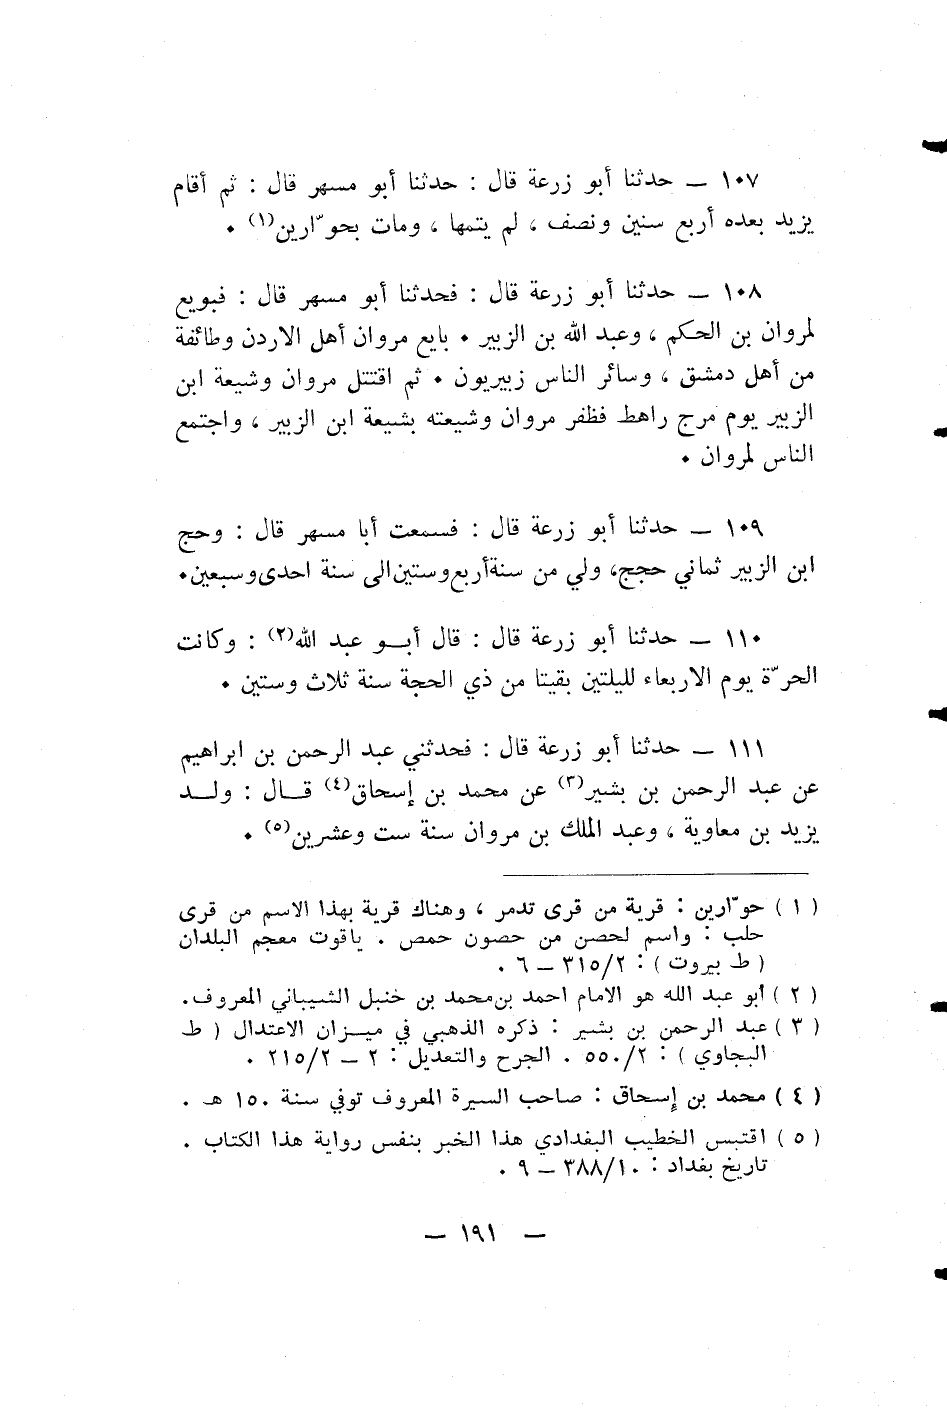 ١٠٧ — حدثنا أبو زرعة قال : حدثنا أبو مسهر قال : ثم أقام
يزيد بعده أربع سنين ونصف ، لم يتمها ، ومات بحوّارين(١) .
١٠٨ — حدثنا أبو زرعة قال : فحدثنا أبو مسهر قال : فبويع
لمروان بن الحكم ، وعبد الله بن الزبير . بايع مروان أهل الاردن وطائفة
من أهل دمشق ، وسائر الناس زبيريون . ثم اقتتل مروان وشيعة ابن
الزبير يوم مرج راهط فظفر مروان وشيعته بشيعة ابن الزبير ، واجتمع
الناس لمروان .
١٠٩ — حدثنا أبو زرعة قال : فسمعت أبا مسهر قال : وحج
ابن الزبير ثماني حجج، ولي من سنة أربع وستين الى سنة احدى وسبعين.
١١٠ — حدثنا أبو زرعة قال : قال أبــو عبد الله(٢) : وكانت
الحرّة يوم الاربعاء لليلتين بقيتا من ذي الحجة سنة ثلاث وستين .
١١١ — حدثنا أبو زرعة قال : فحدثني عبد الرحمن بن ابراهيم
عن عبد الرحمن بن بشير(٣) عن محمد بن إسحاق(٤) قــال : ولــد
يزيد بن معاوية ، وعبد الملك بن مروان سنة ست وعشرين(٥) .
( ١ ) حوّارين : قرية من قرى تدمر ، وهناك قرية بهذا الاسم من قرى
حلب : واسم لحصن من حصون حمص . ياقوت معجم البلدان
( ط بيروت ) : ٣١٥/٢ — ٦ .
( ٢ ) أبو عبد الله هو الامام احمد بن محمد بن خنبل الشيباني المعروف.
( ٣ ) عبد الرحمن بن بشير : ذكره الذهبي في ميــزان الاعتدال ( ط
البجاوي ) : ٥٥٠/٢ . الجرح والتعديل : ٢ — ٢١٥/٢ .
( ٤ ) محمد بن إسحاق : صاحب السيرة المعروف توفي سنة ١٥٠ هـ .
( ٥ ) اقتبس الخطيب البغدادي هذا الخبر بنفس رواية هذا الكتاب .
تاريخ بغداد : ٣٨٨/١٠ — ٩ .
— ١٩١ —